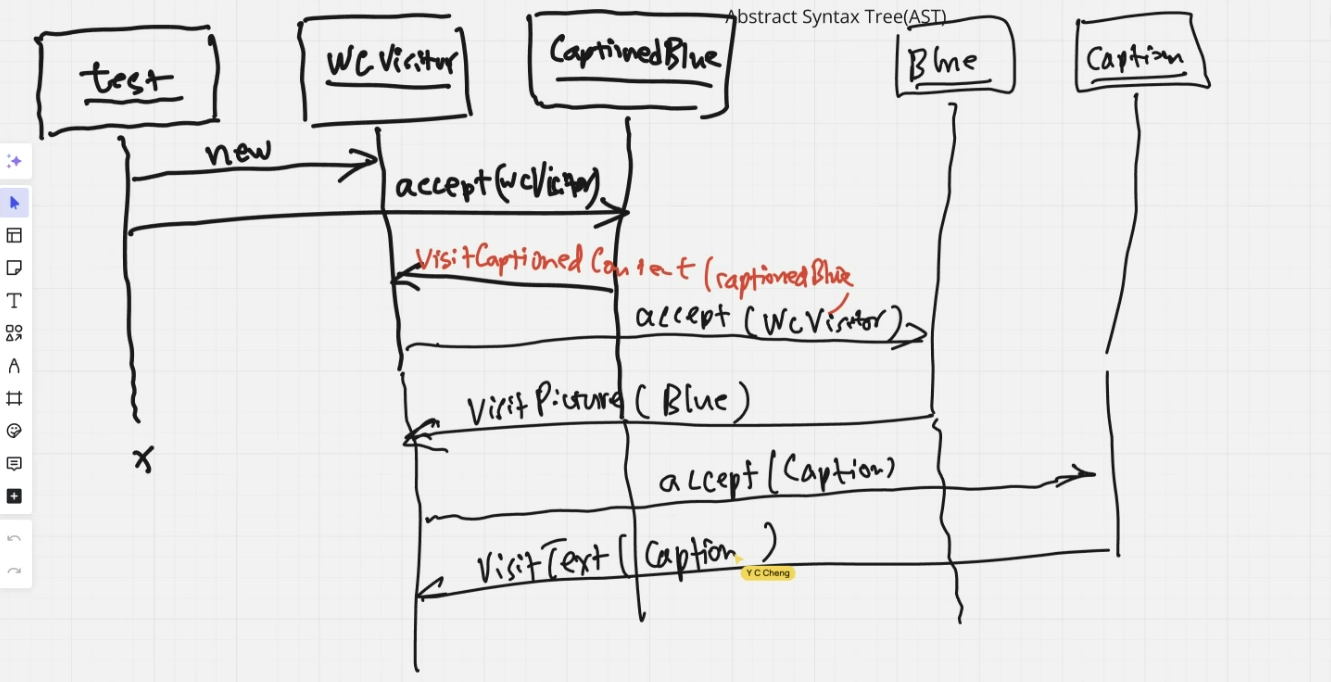 Abstract Syntax Tree(AST)
test
WCVisitor
CaptionedBlue
Blue
Caption
new
accept(WCVisitor)
VisitCaptionedContent(captionedBlue
accept(WCVisitor)
VisitPicture(Blue)
accept(Caption)
VisitText(Caption)
Y C Cheng
x